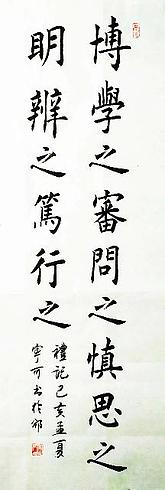 博學之審問之慎思之
明辨之篤行之
禮記己亥孟夏
寧可書於邠